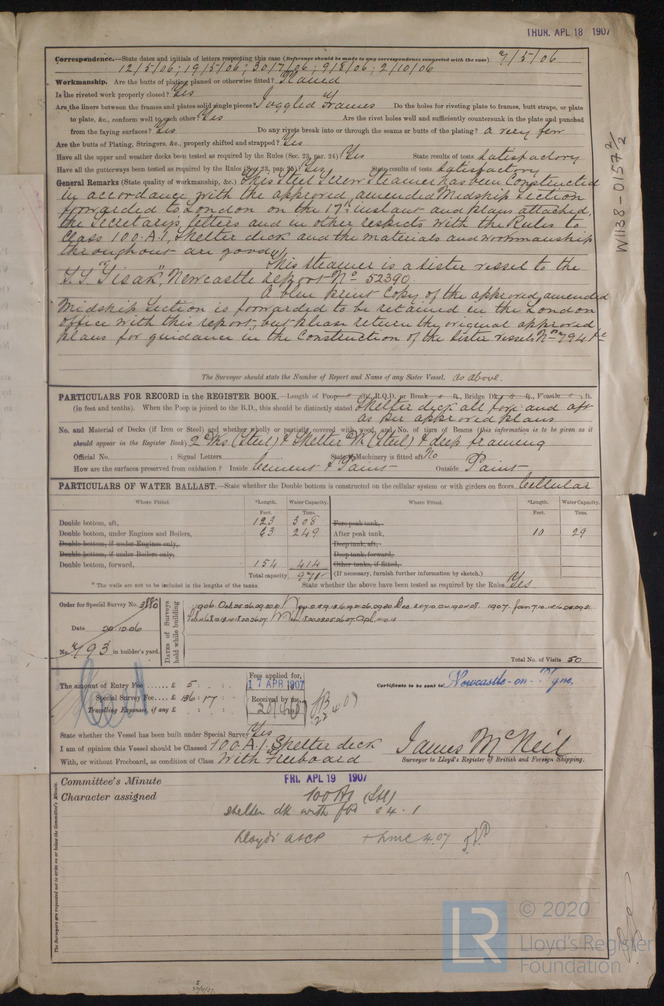 THUR. APL 18 1907
Correspondence.—State dates and initials of letters respecting this case (Reference should be made to any correspondence connected with the case) 7/5/06
12/5/06; 19/5/06; 30/7/06; 9/8/06; 2/10/06
Workmanship. Are the butts of plating planed or otherwise fitted? Planed
Is the riveted work properly closed? Yes
Are the liners between the frames and plates solid single pieces? Joggled frames Do the holes for riveting plate to frames, butt straps, or plate
to plate, &c., conform well to each other? Yes Are the rivet holes well and sufficiently countersunk in the plate and punched
from the faying surfaces? Yes Do any rivets break into or through the seams or butts of the plating? a very few
Are the butts of Plating, Stringers, &c., properly shifted and strapped? Yes
Have all the upper and weather decks been tested as required by the Rules (Sec. 23, par. 24)? Yes State results of tests Satisfactory
Have all the gutterways been tested as required by the Rules Yes State results of tests Satisfactory
General Remarks (State quality of workmanship, &c.) This Steel Screw Steamer has been Constructed
in accordance with the approved amended Midship Section
forwarded to London on the 17th instant and plans attached,
the Secretary's letters and in other respects with the Rules to
Class 100.A.1, Shelter deck and the materials and workmanship
throughout are good.
This steamer is a sister vessel to the
S.S. Newcastle report No. 52390.
A blue print copy of the approved amended
Midship Section is forwarded to be retained in the London
office with this report, but please return the original approved
plans for guidance in the Construction of the Sister vessels No. 794 &c
W1138-0157 2/2
The Surveyor should state the Number of Report and Name of any Sister Vessel. as above.
PARTICULARS FOR RECORD in the REGISTER BOOK.—Length of Poop ft., R.Q.D. or Break ft., Bridge Dk. ft., F'castle ft.
(in feet and tenths). When the Poop is joined to the B.D., this should be distinctly stated Shelter deck all fore and aft
as per approved plans
No. and Material of Decks (if Iron or Steel) and whether wholly or partially covered with wood, and No. of tiers of Beams (this information is to be given as it
should appear in the Register Book) 2 Dks (Steel) & Shelter Dk (Steel) & deep framing
Official No. ; Signal Letters State if Machinery is fitted aft No
How are the surfaces preserved from oxidation? Inside Cement & Paint Outside Paint
PARTICULARS OF WATER BALLAST.—State whether the Double bottom is constructed on the cellular system or with girders on floors. Cellular
Where Fitted. *Length. Feet. Water Capacity. Tons. Where Fitted. *Length. Feet. Water Capacity. Tons.
Double bottom, aft, 123 308 Fore peak tank,
Double bottom, under Engines and Boilers, 63 249 After peak tank, 10 29
Double bottom, if under Engines only, Deep tank, aft,
Double bottom, if under Boilers only, Deep tank, forward,
Double bottom, forward, 154 414 Other tanks, if fitted,
Total capacity 971 (If necessary, furnish further information by sketch.)
* The wells are not to be included in the lengths of the tanks. State whether the above have been tested as required by the Rules Yes
Order for Special Survey No. 3880
Date 20.10.06
No. 793 in builder's yard.
Dates of Surveys held while building
Total No. of Visits 50
The amount of Entry Fee £ 5
Special Survey Fee £ 186.17
Travelling Expenses, if any £
Fees applied for,
17 APR 1907
Received by me,
Certificate to be sent to Newcastle-on-Tyne.
State whether the Vessel has been built under Special Survey Yes
I am of opinion this Vessel should be Classed 100.A.1 Shelter deck
With, or without Freeboard, as condition of Class With Freeboard
James McNeil
Surveyor to Lloyd's Register of British and Foreign Shipping.
Committee's Minute FRI. APL 19 1907
Character assigned 100A1 (Stl)
Shelter dk with fbd
Lloyds + LMC 4.07
The Surveyors are requested not to write on or below the Committee's Minute.
LR
© 2020
Lloyd's Register
Foundation